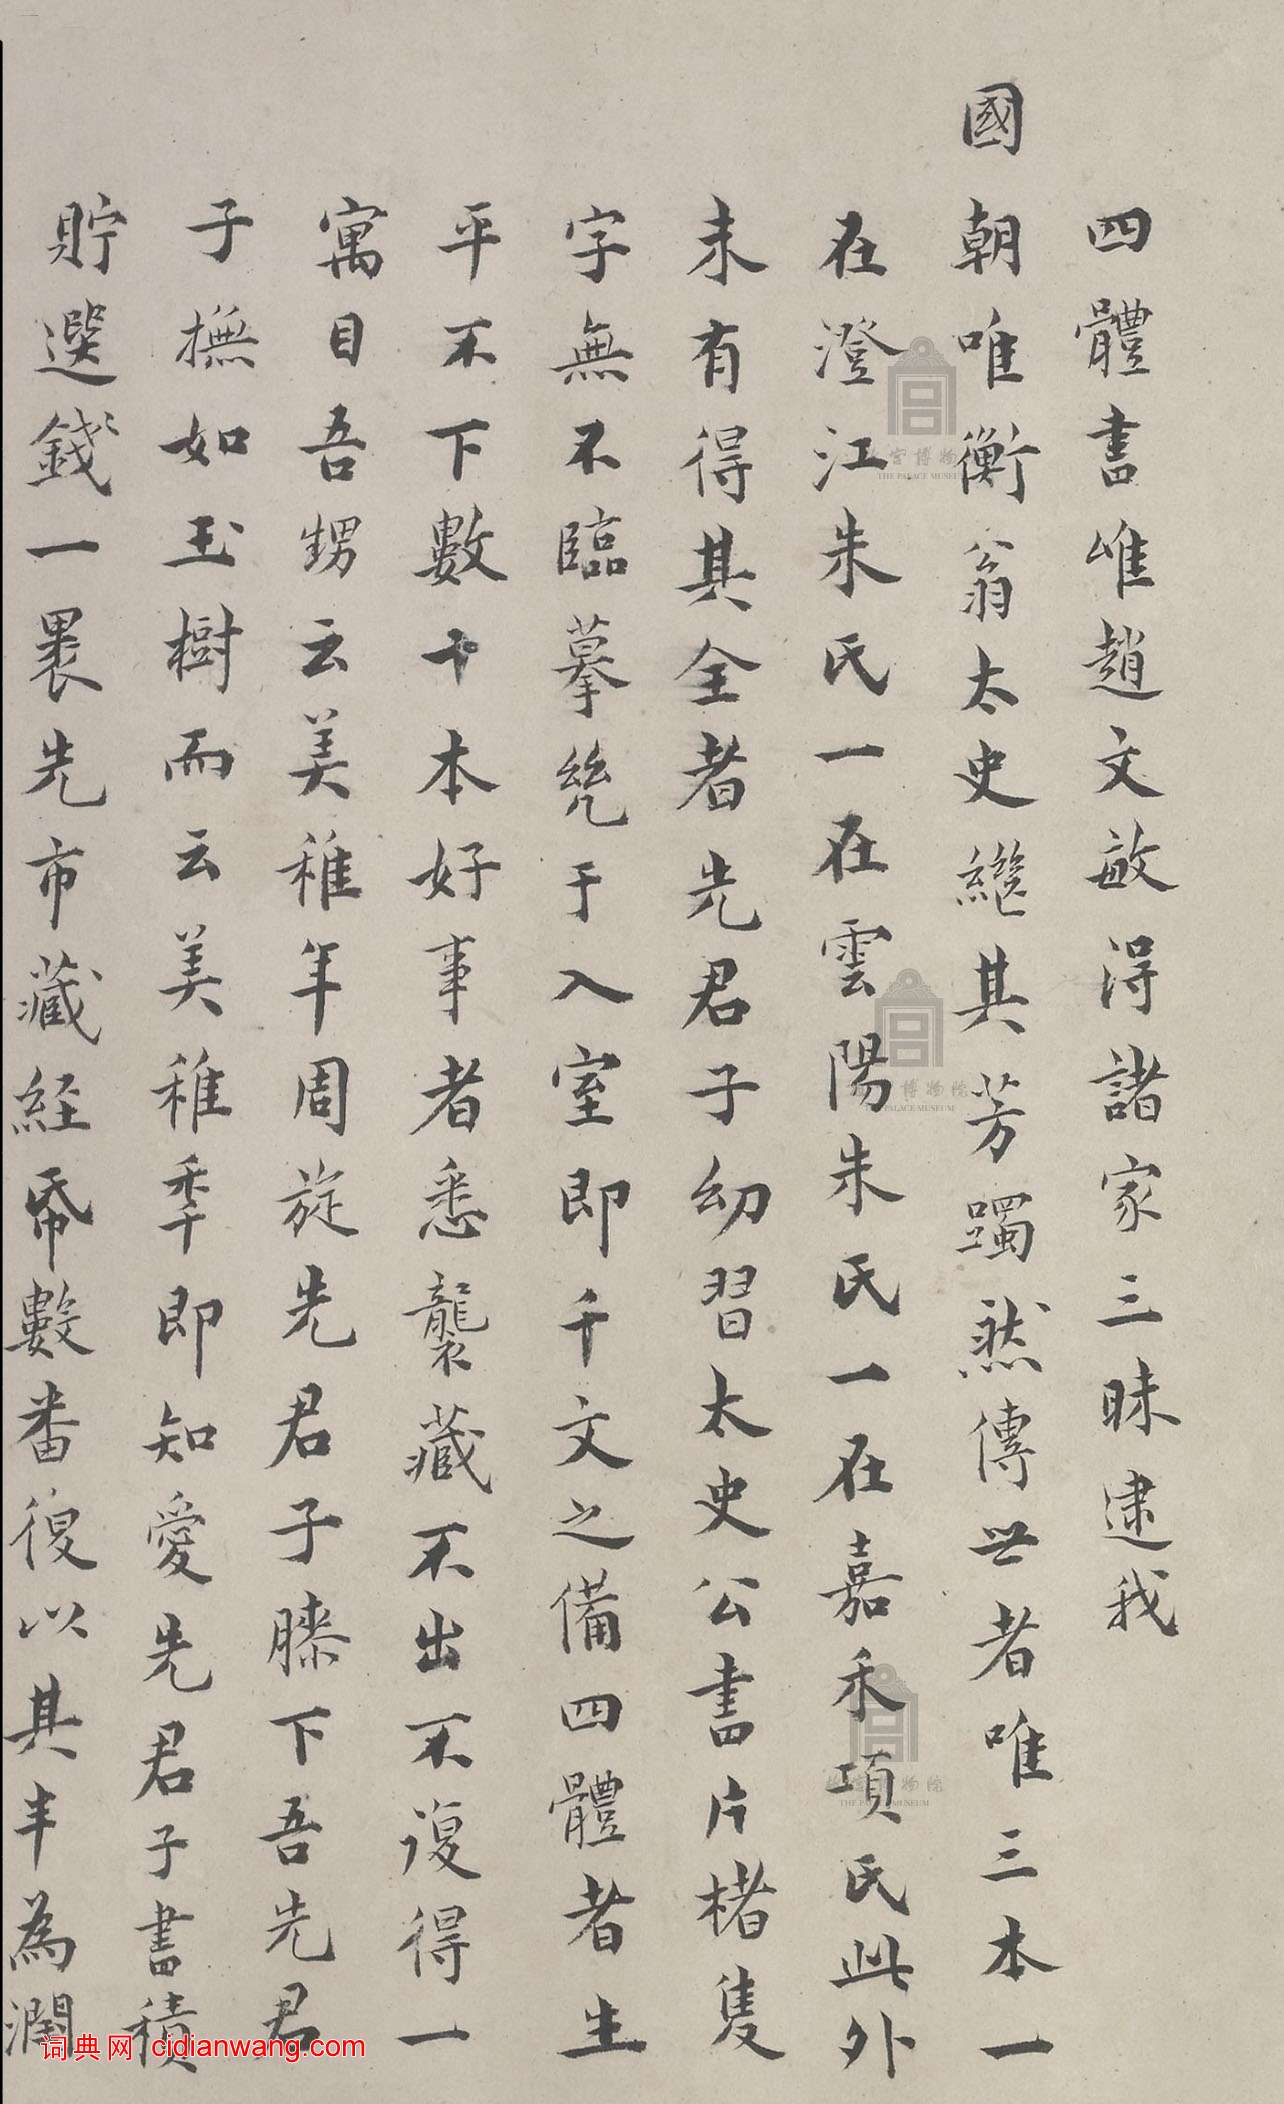 四體書唯趙文敏得諸家三昧逮我
國朝唯衡翁太史繼其芳躅然傳世者唯三本一
在澄江朱氏一在雲陽朱氏一在嘉禾項氏此外
未有得其全者先君子幼習太史公書片楮隻
字無不臨摹幾于入室即千文之備四體者生
平不下數十本好事者悉襲藏不出不復得一
寓目吾甥云美稚年周旋先君子膝下吾先君
子撫如玉樹而云美稚季即知愛先君子書積
貯選錢一褁先市藏経帋數番復以其半為潤
故宮博物院
THE PALACE MUSEUM
故宮博物院
THE PALACE MUSEUM
故宮博物院
THE PALACE MUSEUM
词典网 cidianwang.com